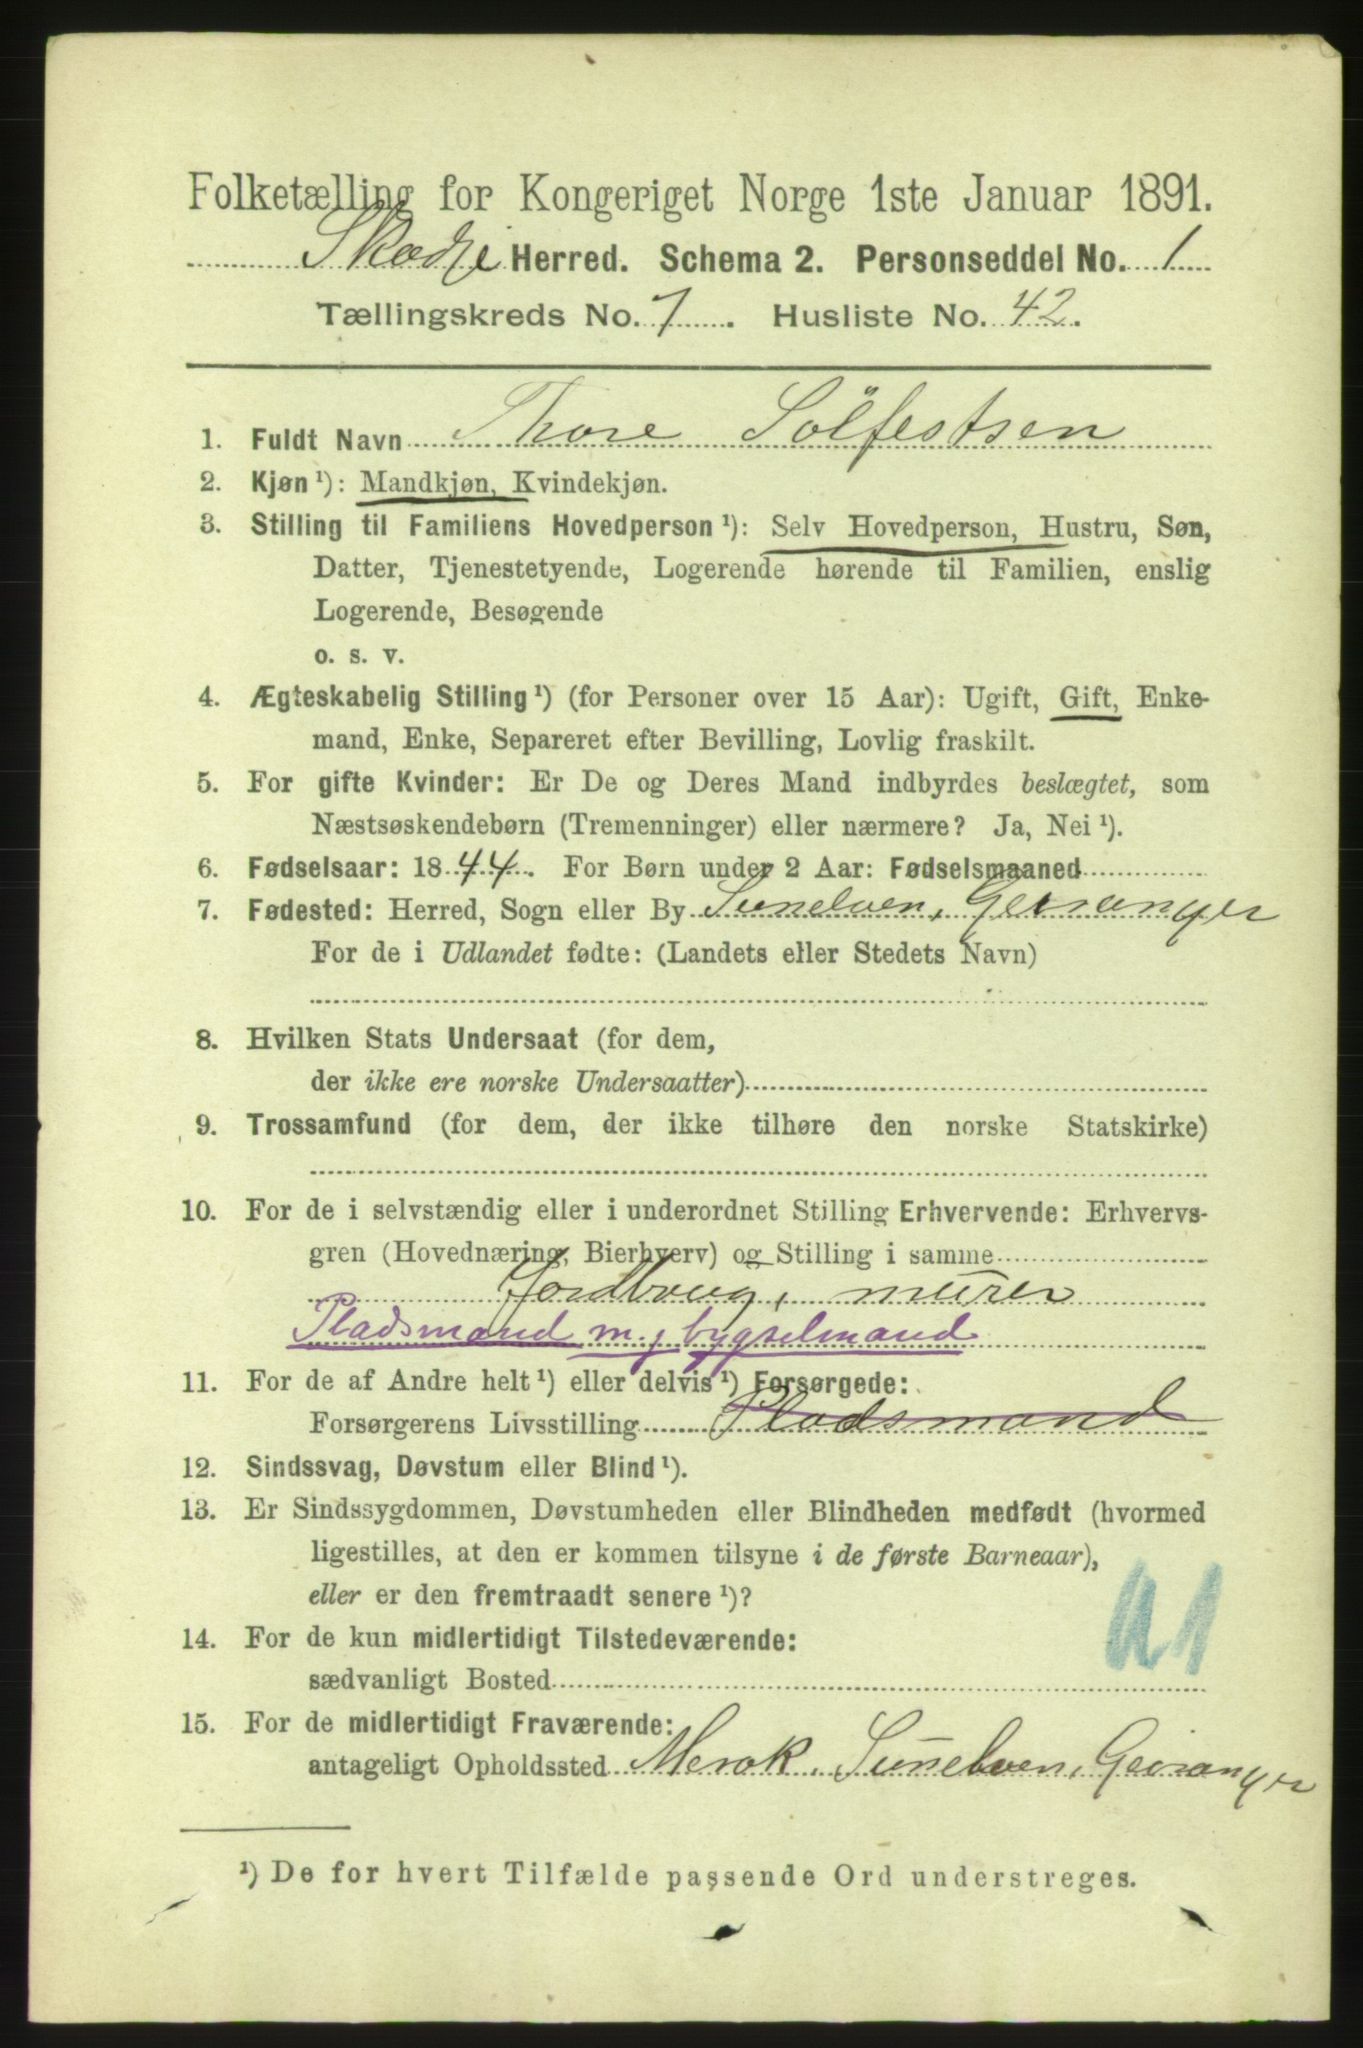 Folketælling for Kongeriget Norge 1ste Januar 1891.
Skodje Herred. Schema 2. Personseddel No. 1
Tællingskreds No. 7. Husliste No. 42.
1. Fuldt Navn Thore Sölfestsen
2. Kjøn ¹): Mandkjøn, Kvindekjøn.
3. Stilling til Familiens Hovedperson ¹): Selv Hovedperson, Hustru, Søn,
Datter, Tjenestetyende, Logerende hørende til Familien, enslig
Logerende, Besøgende
o. s. v.
4. Ægteskabelig Stilling ¹) (for Personer over 15 Aar): Ugift, Gift, Enke-
mand, Enke, Separeret efter Bevilling, Lovlig fraskilt.
5. For gifte Kvinder: Er De og Deres Mand indbyrdes beslægtet, som
Næstsøskendebørn (Tremenninger) eller nærmere? Ja, Nei ¹).
6. Fødselsaar: 1844. For Børn under 2 Aar: Fødselsmaaned
7. Fødested: Herred, Sogn eller By Sunelven, Geiranger
For de i Udlandet fødte: (Landets eller Stedets Navn)
8. Hvilken Stats Undersaat (for dem,
der ikke ere norske Undersaatter)
9. Trossamfund (for dem, der ikke tilhøre den norske Statskirke)
10. For de i selvstændig eller i underordnet Stilling Erhvervende: Erhvervs-
gren (Hovednæring, Bierhverv) og Stilling i samme
Jordbrug, murer
Pladsmand m. j bygselmand
11. For de af Andre helt ¹) eller delvis ¹) Forsørgede:
Forsørgerens Livsstilling Pladsmand
12. Sindssvag, Døvstum eller Blind ¹).
13. Er Sindssygdommen, Døvstumheden eller Blindheden medfødt (hvormed
ligestilles, at den er kommen tilsyne i de første Barneaar),
eller er den fremtraadt senere ¹)?
14. For de kun midlertidigt Tilstedeværende:
sædvanligt Bosted
15. For de midlertidigt Fraværende:
antageligt Opholdssted Merok, Sunelven, Geiranger
¹) De for hvert Tilfælde passende Ord understreges.